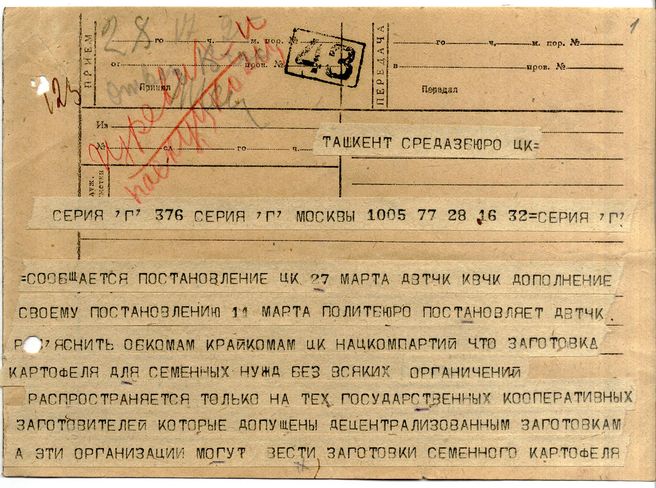 1
ПРИЕМ
28 IV
го ч. м. пор. №
от пров. №
Принял
43
ПЕРЕДАЧА
го ч. м. пор. №
в пров. №
Передал
123
Из
№ сл. го ч.
ТАШКЕНТ СРЕДАЗБЮРО ЦК=
СЕРИЯ 'Г' 376 СЕРИЯ 'Г' МОСКВЫ 1005 77 28 16 32=СЕРИЯ 'Г'
=СООБЩАЕТСЯ ПОСТАНОВЛЕНИЕ ЦК 27 МАРТА ДВТЧК КВЧК ДОПОЛНЕНИЕ
СВОЕМУ ПОСТАНОВЛЕНИЮ 11 МАРТА ПОЛИТБЮРО ПОСТАНОВЛЯЕТ ДВТЧК
Р 'ЯСНИТЬ ОБКОМАМ КРАЙКОМАМ ЦК НАЦКОМПАРТИЙ ЧТО ЗАГОТОВКА
КАРТОФЕЛЯ ДЛЯ СЕМЕННЫХ НУЖД БЕЗ ВСЯКИХ ОРГАНИЧЕНИЙ
РАСПРОСТРАНЯЕТСЯ ТОЛЬКО НА ТЕХ ГОСУДАРСТВЕННЫХ КООПЕРАТИВНЫХ
ЗАГОТОВИТЕЛЕЙ КОТОРЫЕ ДОПУЩЕНЫ ДЕЦЕНТРАЛИЗОВАННЫМ ЗАГОТОВКАМ
А ЭТИ ОРГАНИЗАЦИИ МОГУТ ВЕСТИ ЗАГОТОВКИ СЕМЕННОГО КАРТОФЕЛЯ